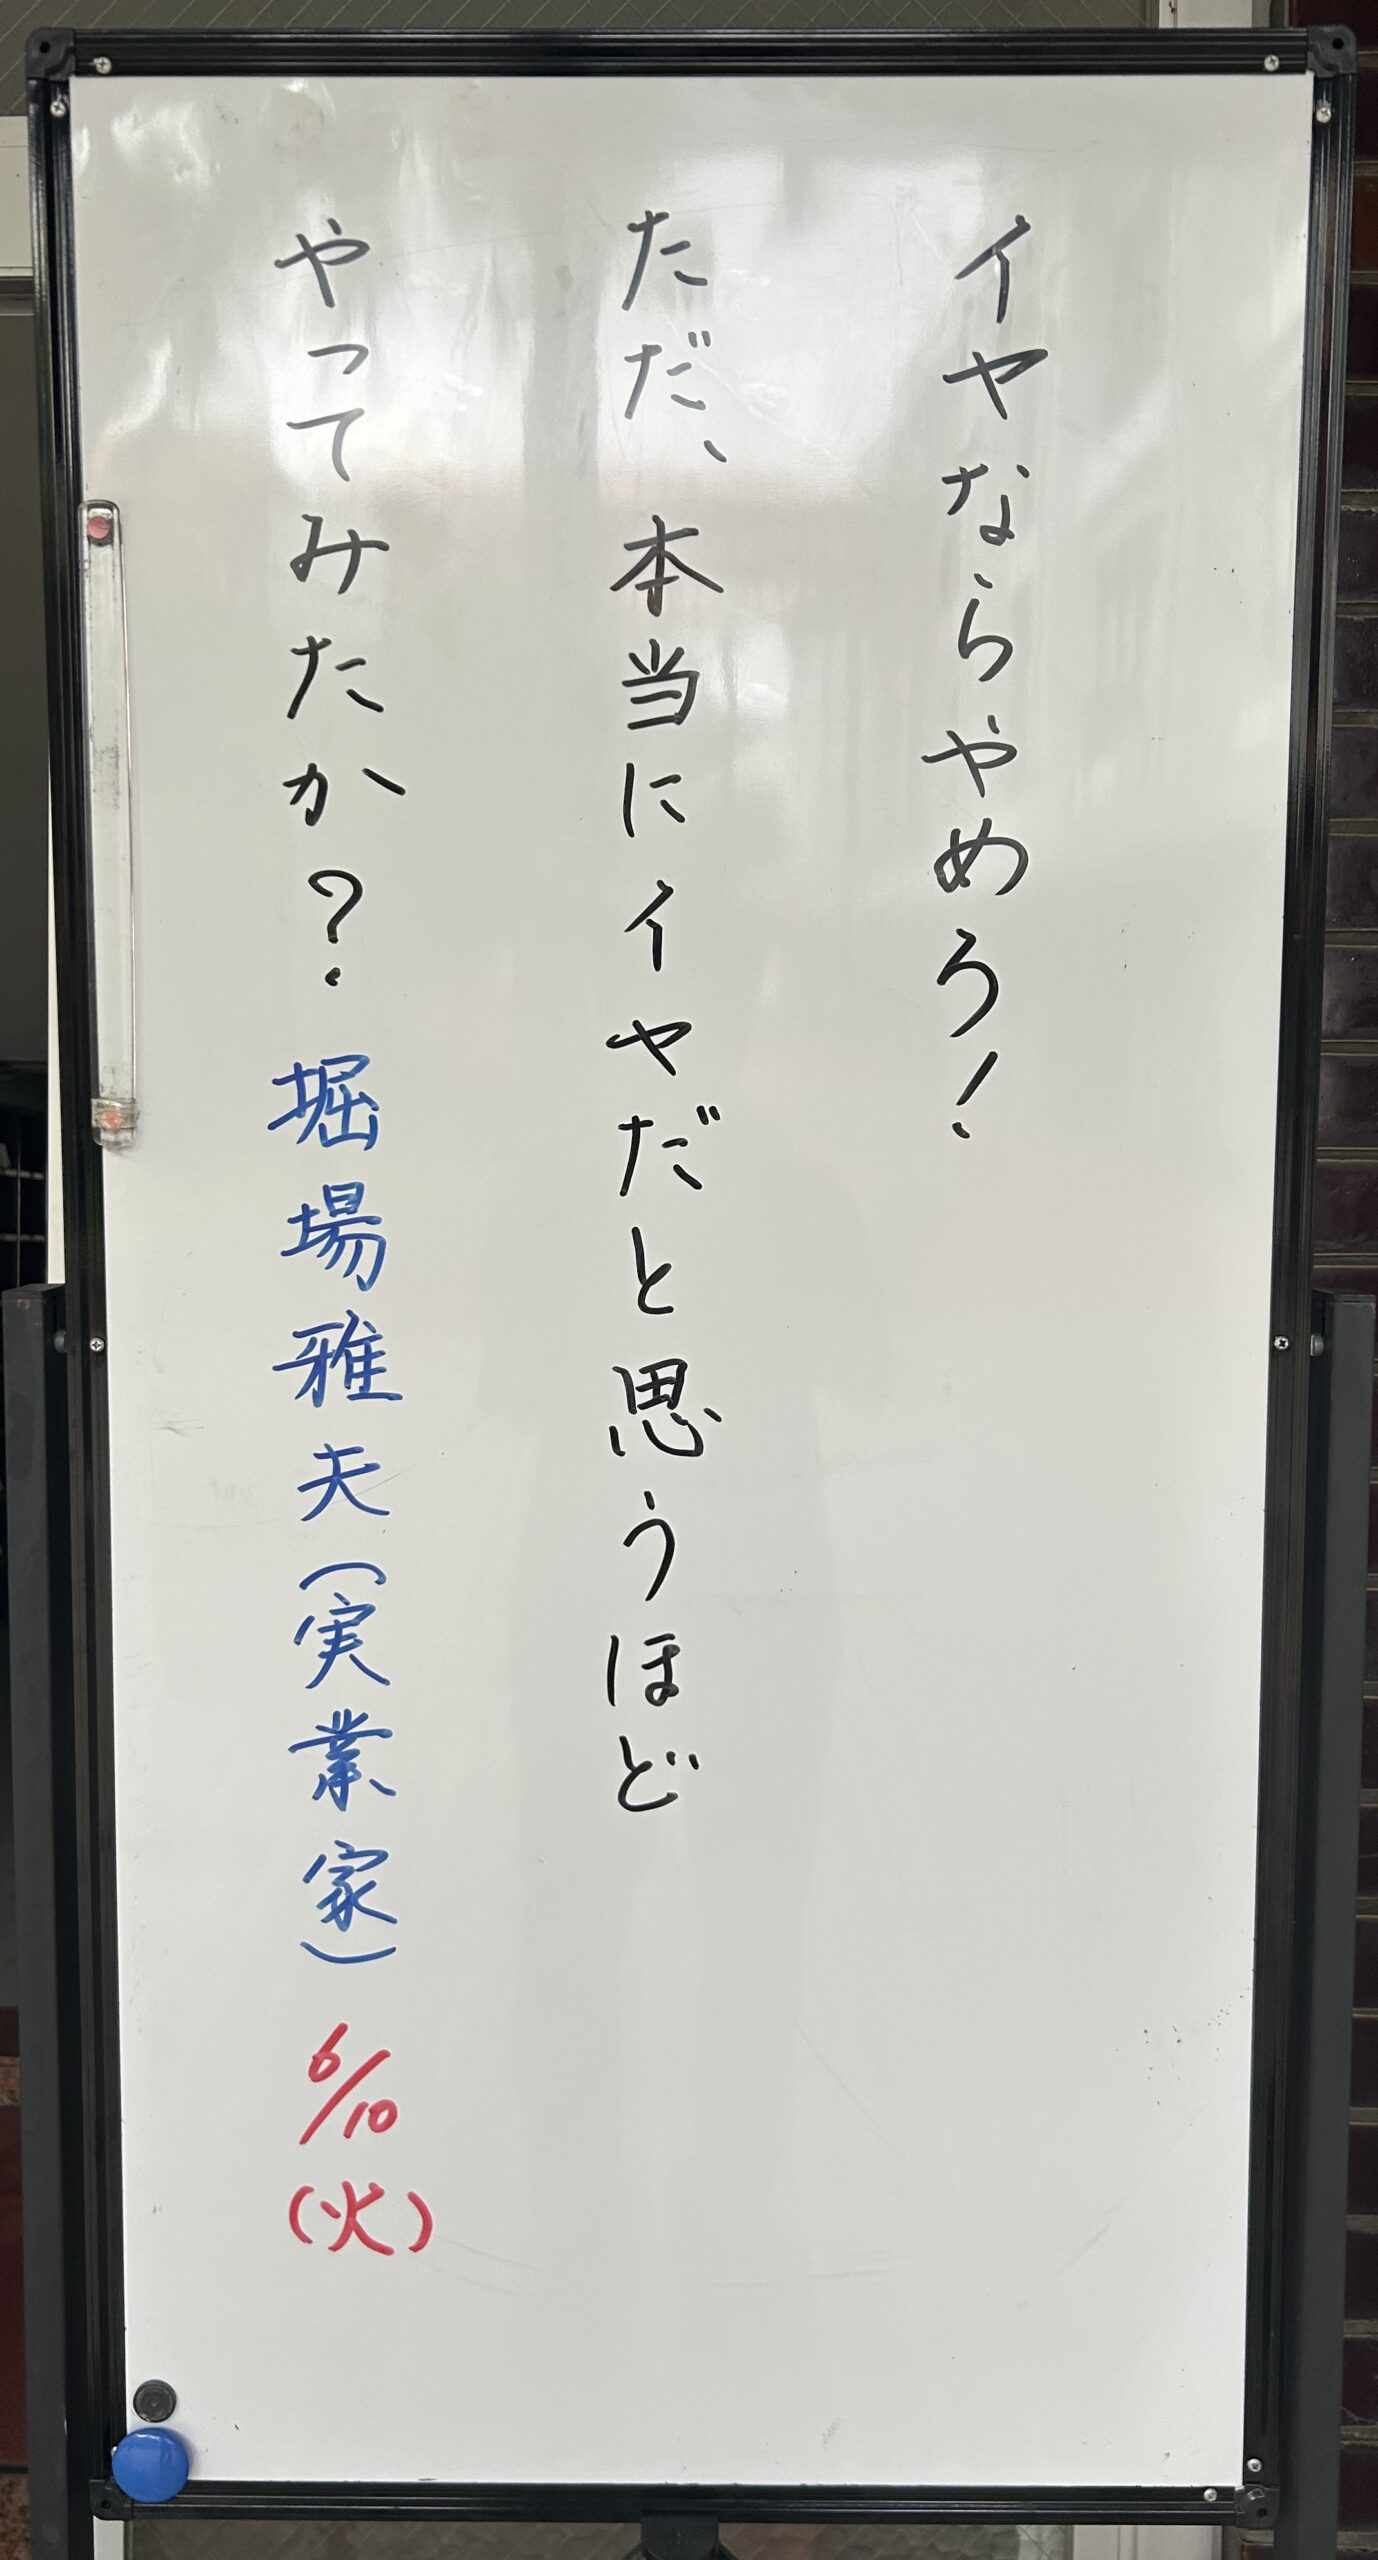 イヤならやめろ!
ただ、本当にイヤだと思うほど
やってみたか?堀場雅夫(実業家)6/10(火)